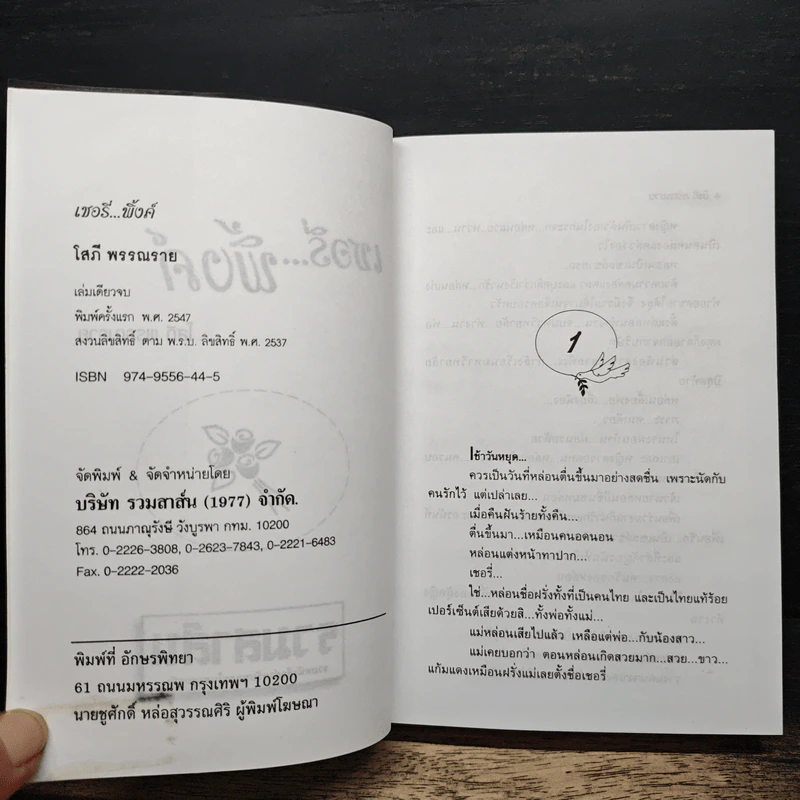 เชอรี่...พิ้งค์
โสภี พรรณราย
เล่มเดียวจบ
พิมพ์ครั้งแรก พ.ศ. 2547
สงวนลิขสิทธิ์ ตาม พ.ร.บ. ลิขสิทธิ์ พ.ศ. 2537
ISBN 974-9556-44-5
จัดพิมพ์ & จัดจำหน่ายโดย
บริษัท รวมสาส์น (1977) จำกัด.
864 ถนนภาณุรังษี วังบูรพา กทม. 10200
โทร. 0-2226-3808, 0-2623-7843, 0-2221-6483
Fax. 0-2222-2036
พิมพ์ที่ อักษรพิทยา
61 ถนนมหรรณพ กรุงเทพฯ 10200
นายชูศักดิ์ หล่อสุวรรณศิริ ผู้พิมพ์โฆษณา
1
เช้าวันหยุด...
ควรเป็นวันที่หล่อนตื่นขึ้นมาอย่างสดชื่น เพราะนัดกับ
คนรักไว้ แต่เปล่าเลย...
เมื่อคืนฝันร้ายทั้งคืน...
ตื่นขึ้นมา...เหมือนคนอดนอน
หล่อนแต่งหน้าทาปาก...
เชอรี่...
ใช่...หล่อนชื่อฝรั่งทั้งที่เป็นคนไทย และเป็นไทยแท้ร้อย
เปอร์เซ็นต์เสียด้วยสิ...ทั้งพ่อทั้งแม่...
แม่หล่อนเสียไปแล้ว เหลือแต่พ่อ...กับน้องสาว...
แม่เคยบอกว่า ตอนหล่อนเกิดสวยมาก...สวย...ขาว...
แก้มแดงเหมือนฝรั่งแม่เลยตั้งชื่อเชอรี่